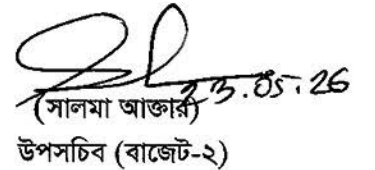 23.05.26
(সালমা আক্তার)
উপসচিব (বাজেট-২)